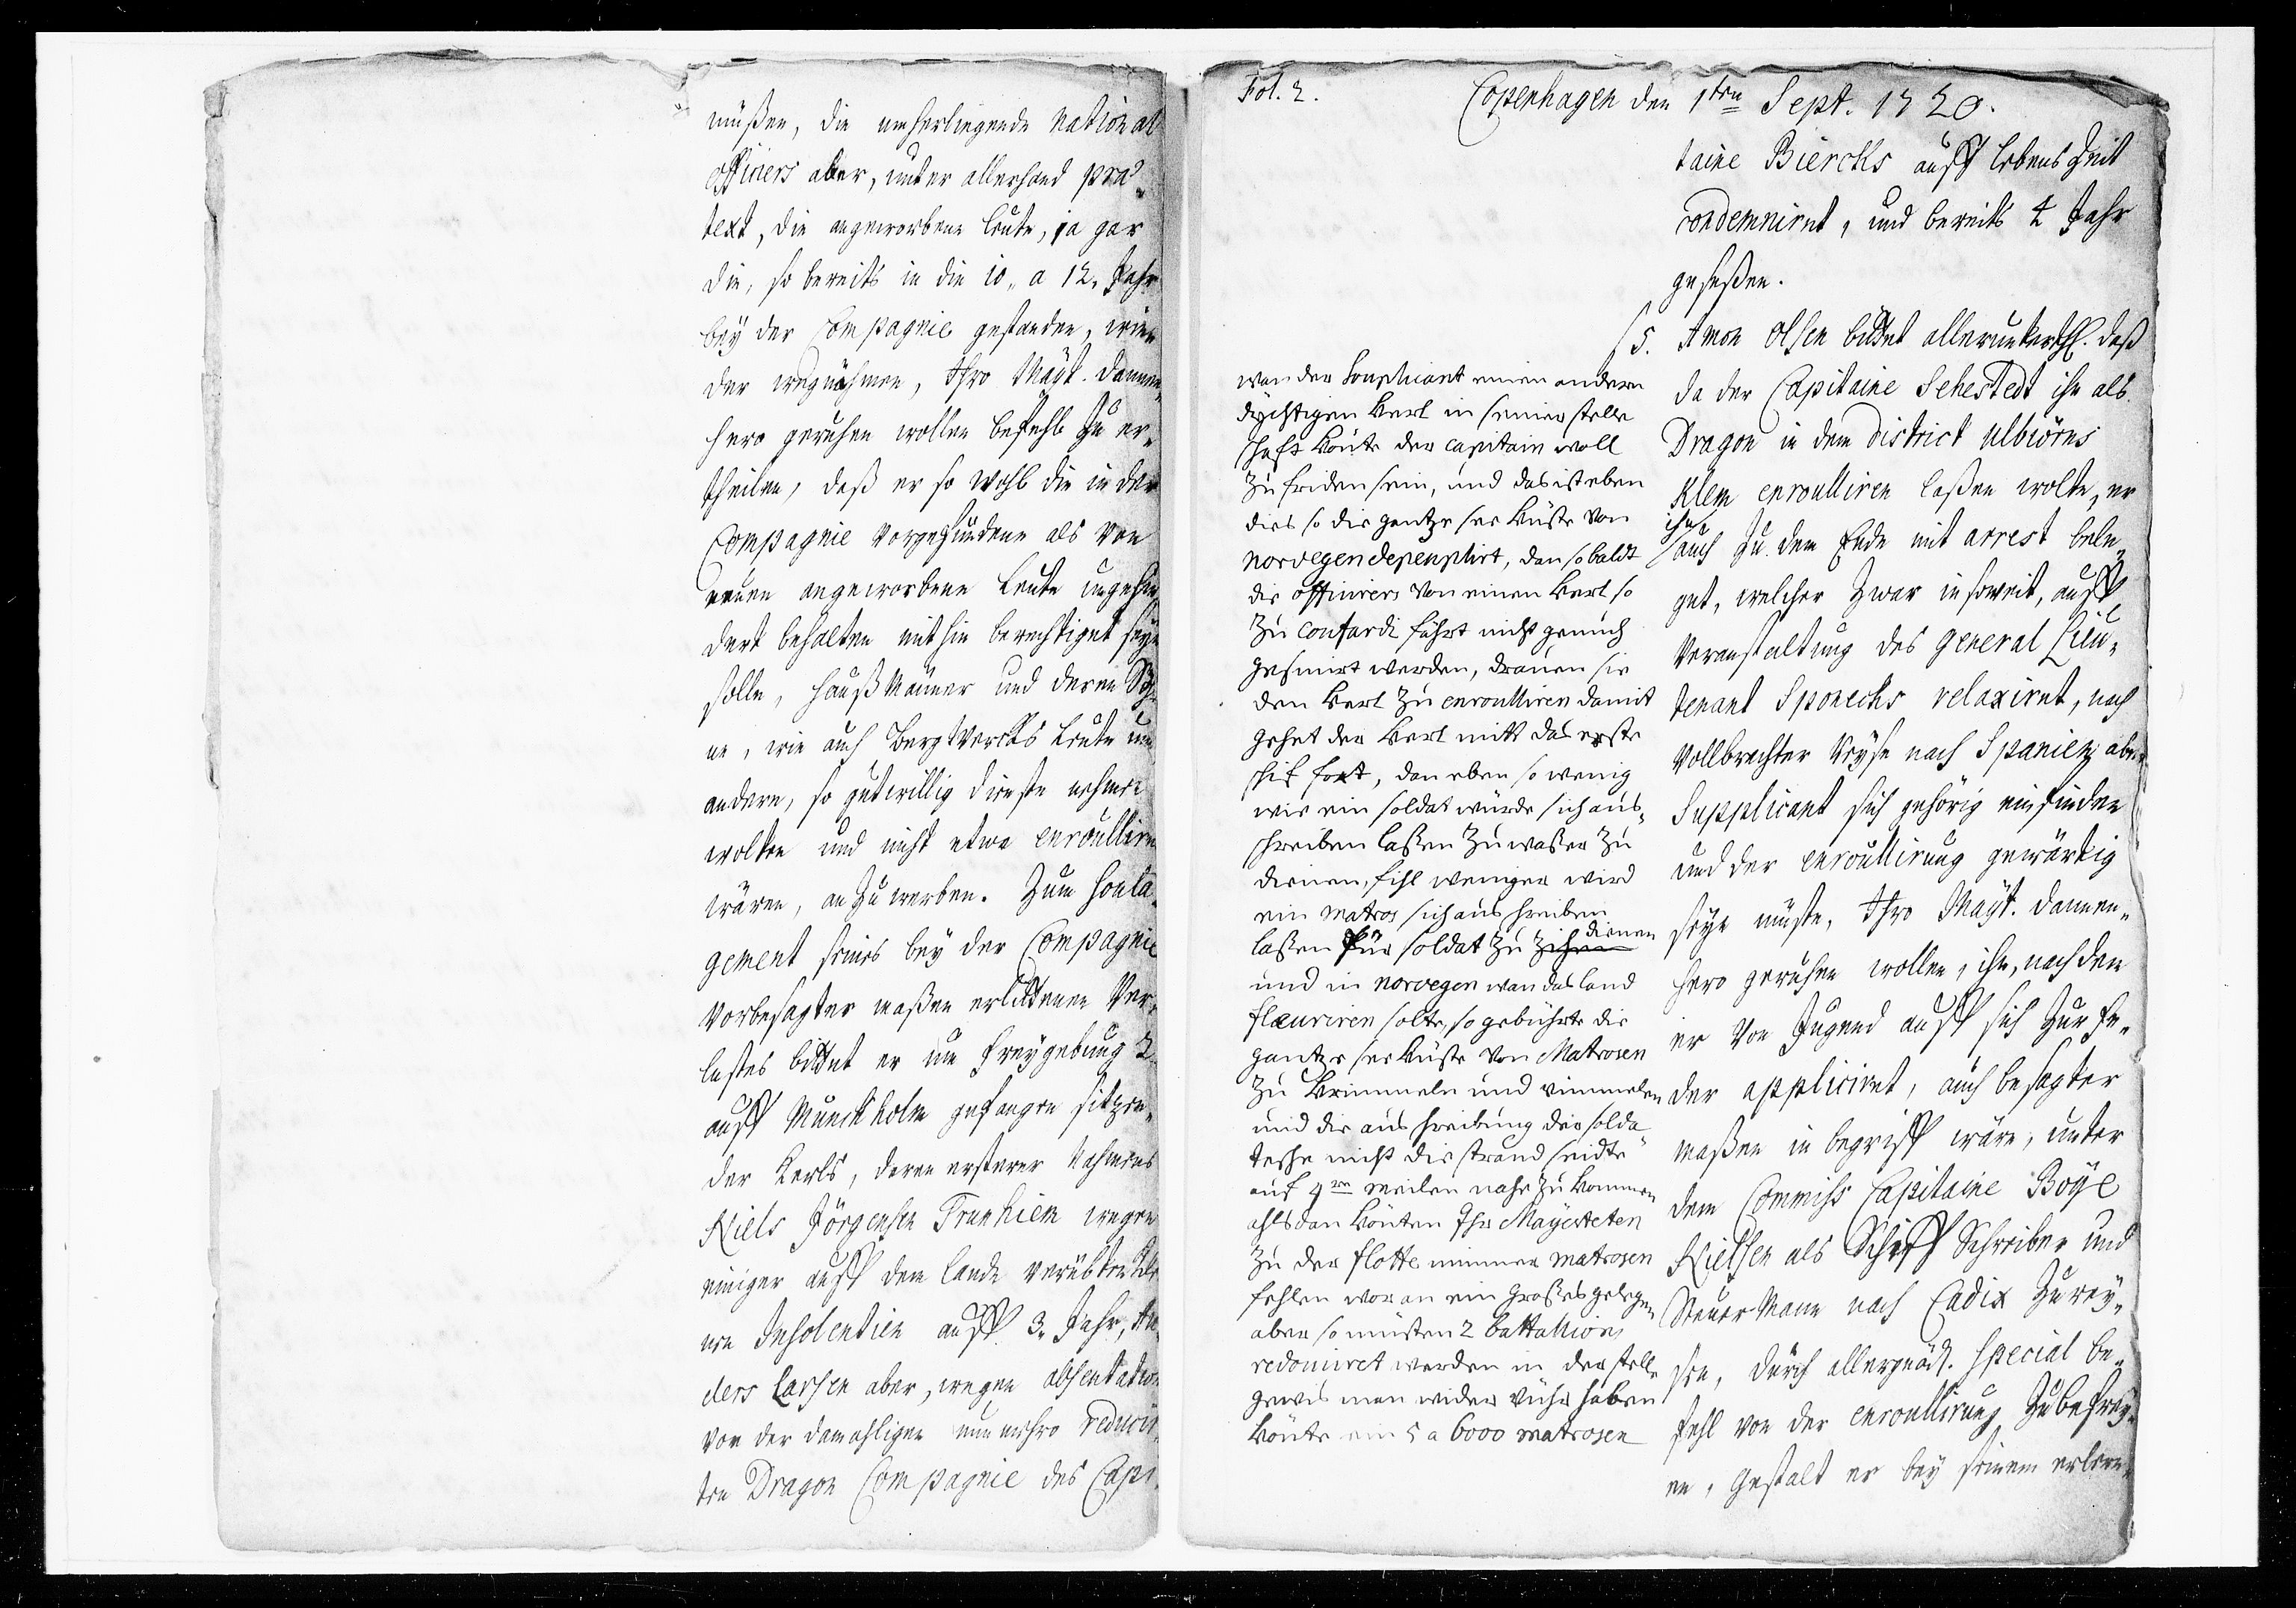 müßen, die umherliegende National
officiers aber, unter allerhand præ„
text, die angeworbene leute, ja gar
die, so bereits in die 10. a 12. Jahr
bey der Compagnie gestanden, wie„
der wegnähmen, Ihro Mayt. dannen„
hero geruhen wollen befehl zu er„
theilen, daß er so wohl die in der
Compagnie vorgefundene als von
neuen angeworbene Leute ungehin„
dert behalten mithin berechtiget seyn
solle, Haußmänner und deren Söh„
ne, wie auch Bergwercks Leute und
andere, so gutwillig dienste nehmen
wolten und nicht etwa enroullirt
wären, anzuwerben. Zum Soula„
gement seines bey der Compagnie
vorbesagter maßen erlittenen Ver„
lustes bittet er um freygebung 2
auff Munckholm gefangen sitzen„
der Kerls, deren ersterer Nahmens
Niels Jörgensen Trunhiem wegen
einiger auff dem Lande verübten klei„
nen Insolentien auff 3. Jahr, An„
ders Larsen aber, wegen absentation
von der damahligen nunmehro reducir„
ten Dragon Compagnie des Capi„
Fol. 2.
Copenhagen den 1ten Sept. 1720.
taine Biercks auff lebens Zeit
condemniret, und bereits 4 Jahr
geseßen.
5. Amon Olsen bittet allerunterthl. daß
da der Capitaine Sehestedt ihn als
Dragon in dem district Ulbiörns
Klem enroulliren laßen wolte, er
ihn
auch zu dem Ende mit arrest bele„
get, welcher zwar in soweit, auff
Veranstaltung des General Lieu„
tenant Sponecks relaxiret, nach
vollbrachter Reyse nach Spanien aber
Supplicant sich gehörig einfinden
und der enroullirung gewärtig
seyn müste, Ihro Mayt. dannen„
hero geruhen wollen, ihn, nachdem
er von Jugend auff sich zur Fe„
der appliciret, auch besagter
maßen in begriff wäre, unter
dem Commiss Capitaine Boye
Nielsen als Schiff Schreiber und
Steuer Mann nach Cadix zu rey„
sen, durch allergnädt. special be„
fehl von der enroullirung zu befrey„
en, gestalt er bey seinem erlern„
wan der Soupliant einen andern
dychtigen Kerl in seiner stelle
schaft Könte der capitain woll
zu friden sein, und das ist eben
dies so die gantze see Küste von
norvegen depeuplirt, dan so baldt
die officirers von einen Kerl so
zu confardi fährt nicht genuch
gesmirt werden, drauen sie
den Kerl zu enroulliren damit
gehet der Kerl mitt das erste
schif fort, dan eben so wenig
wie ein soldat würde sich aus„
schreiben laßen zu waßer zu
dienen, fihl weniger wird
ein matros sich aus schreiben
dienen
laßen für soldat zu
und in norvegen wan das land
flæuriren solte, so gebührte die
gantze see Küste von Matrosen
zu Krimmeln und wimmelen
und die aus schreibung der solda„
teshe nicht die strand seidte
auf 4 meilen nahe zu kommen
alsdan Könten Ihr Mayesteten
zu der flotte nimmer matrosen
fehlen woran ein großes gelegen
aber so müsten 2 battallions
reduciret werden in der stelle
gewis man wider
haben
Könte ein 5 a 6000 matrosen